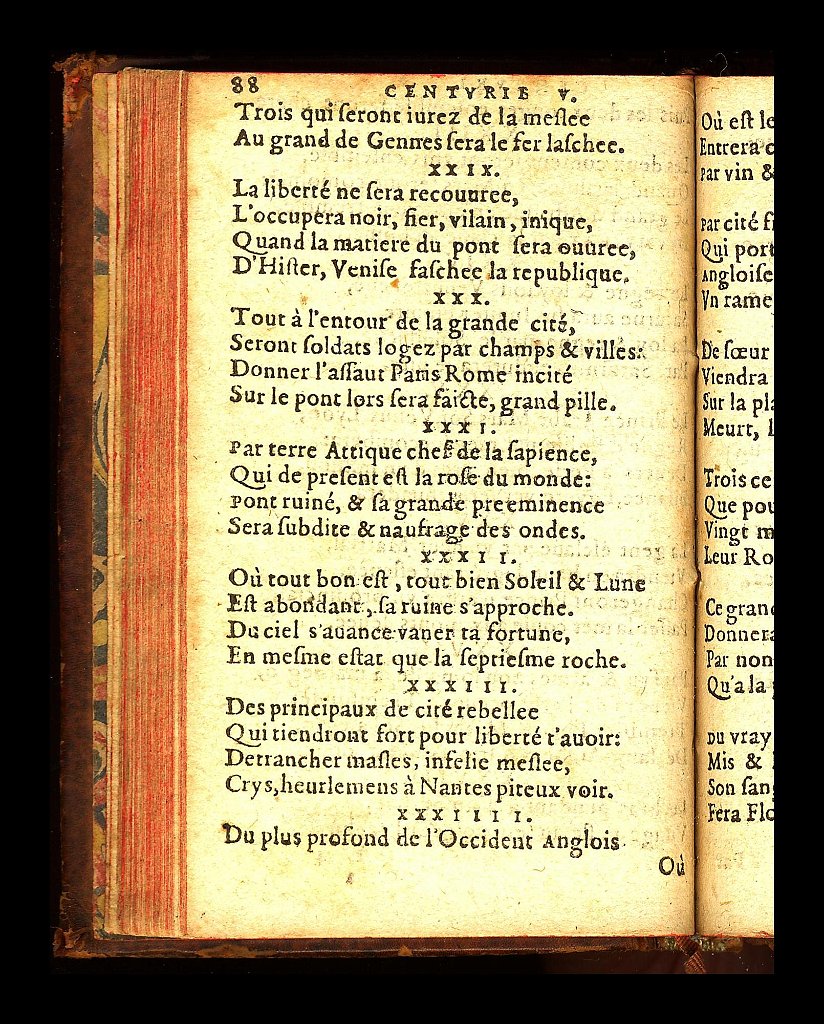 88
CENTVRIE V.
Trois qui ſeront iurez de la meſlee
Au grand de Gennes ſera le fer laſchee.
XXIX.
La liberté ne ſera recouuree,
L'occupera noir, fier, vilain, inique,
Quand la matiere du pont ſera ouuree,
D'Hiſter, Veniſe faſchee la republique.
XXX.
Tout à l'entour de la grande cité,
Seront ſoldats logez par champs & villes:
Donner l'aſſaut Paris Rome incité
Sur le pont lors ſera faicte, grand pille.
XXXI.
Par terre Attique chef de la ſapience,
Qui de preſent eſt la roſe du monde:
Pont ruiné, & ſa grande preeminence
Sera ſubdite & naufrage des ondes.
XXXII.
Où tout bon eſt, tout bien Soleil & Lune
Eſt abondant, ſa ruine s'approche.
Du ciel s'auance vaner ta fortune,
En meſme eſtat que la ſeptieſme roche.
XXXIII.
Des principaux de cité rebellee
Qui tiendront fort pour liberté t'auoir:
Detrancher maſles, infelie meſlee,
Crys, heurlemens à Nantes piteux voir.
XXXIIII.
Du plus profond de l'Occident Anglois
Où
Où eſt le
Entrera
Par vin &
Par cité
Qui port
Angloiſe
Vn rame
De ſœur
Viendra
Sur la pla
Meurt,
Trois ce
Que pou
Vingt
Leur Ro
Ce gran
Donnera
Par non
Qu'a la
Du vray
Mis &
Son ſan
Fera Flo